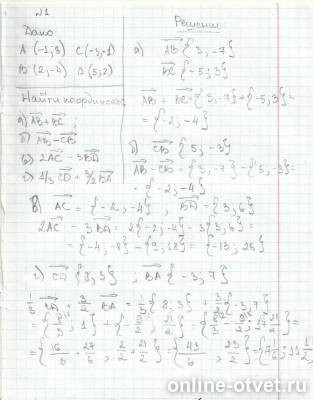 №1
Дано:
A (-1;3) C(-3;-1)
B (2;-4) D (5;2)
Найти координаты
а) AB + BC ;
б) AB - CB
в) 2AC - 3BD
г) 1/3 CD + 3/2 BA
Решение
а) AB {3; -7}
BC {-5; 3}
AB + BC = {3; -7} + {-5; 3} =
= {-2; -4}
б) CB {5; -3}
AB - CB = {3; -7} - {5; -3} =
= {-2; -4}
в) AC = {-2; -4} ; BD = {3; 6}
2AC - 3BD = 2{-2; -4} - 3{3; 6} =
= {-4; -8} - {9; 18} = {-13; 26}
г) CD {8; 3} ; BA {-3; 7}
1/3 CD + 3/2 BA = 1/3 {8; 3} + 3/2 {-3; 7}
= {8/3; 1} + {-9/2; 21/2} =
= {16/6 + 27/6; 2/2 + 21/2} = {43/6; 23/2} = {7 1/6; 11 1/2}
online-otvet.ru